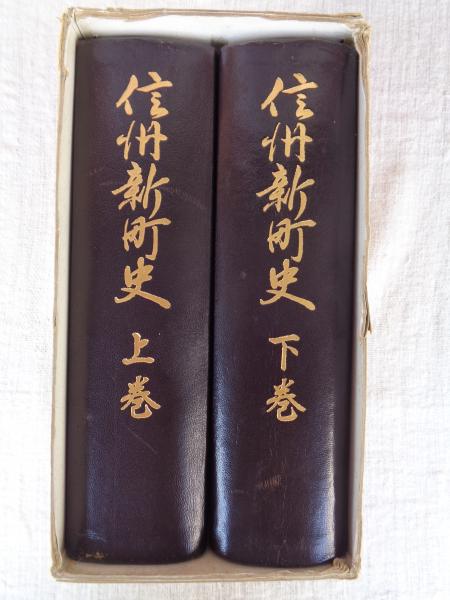 信州新町史 上巻
信州新町史 下巻